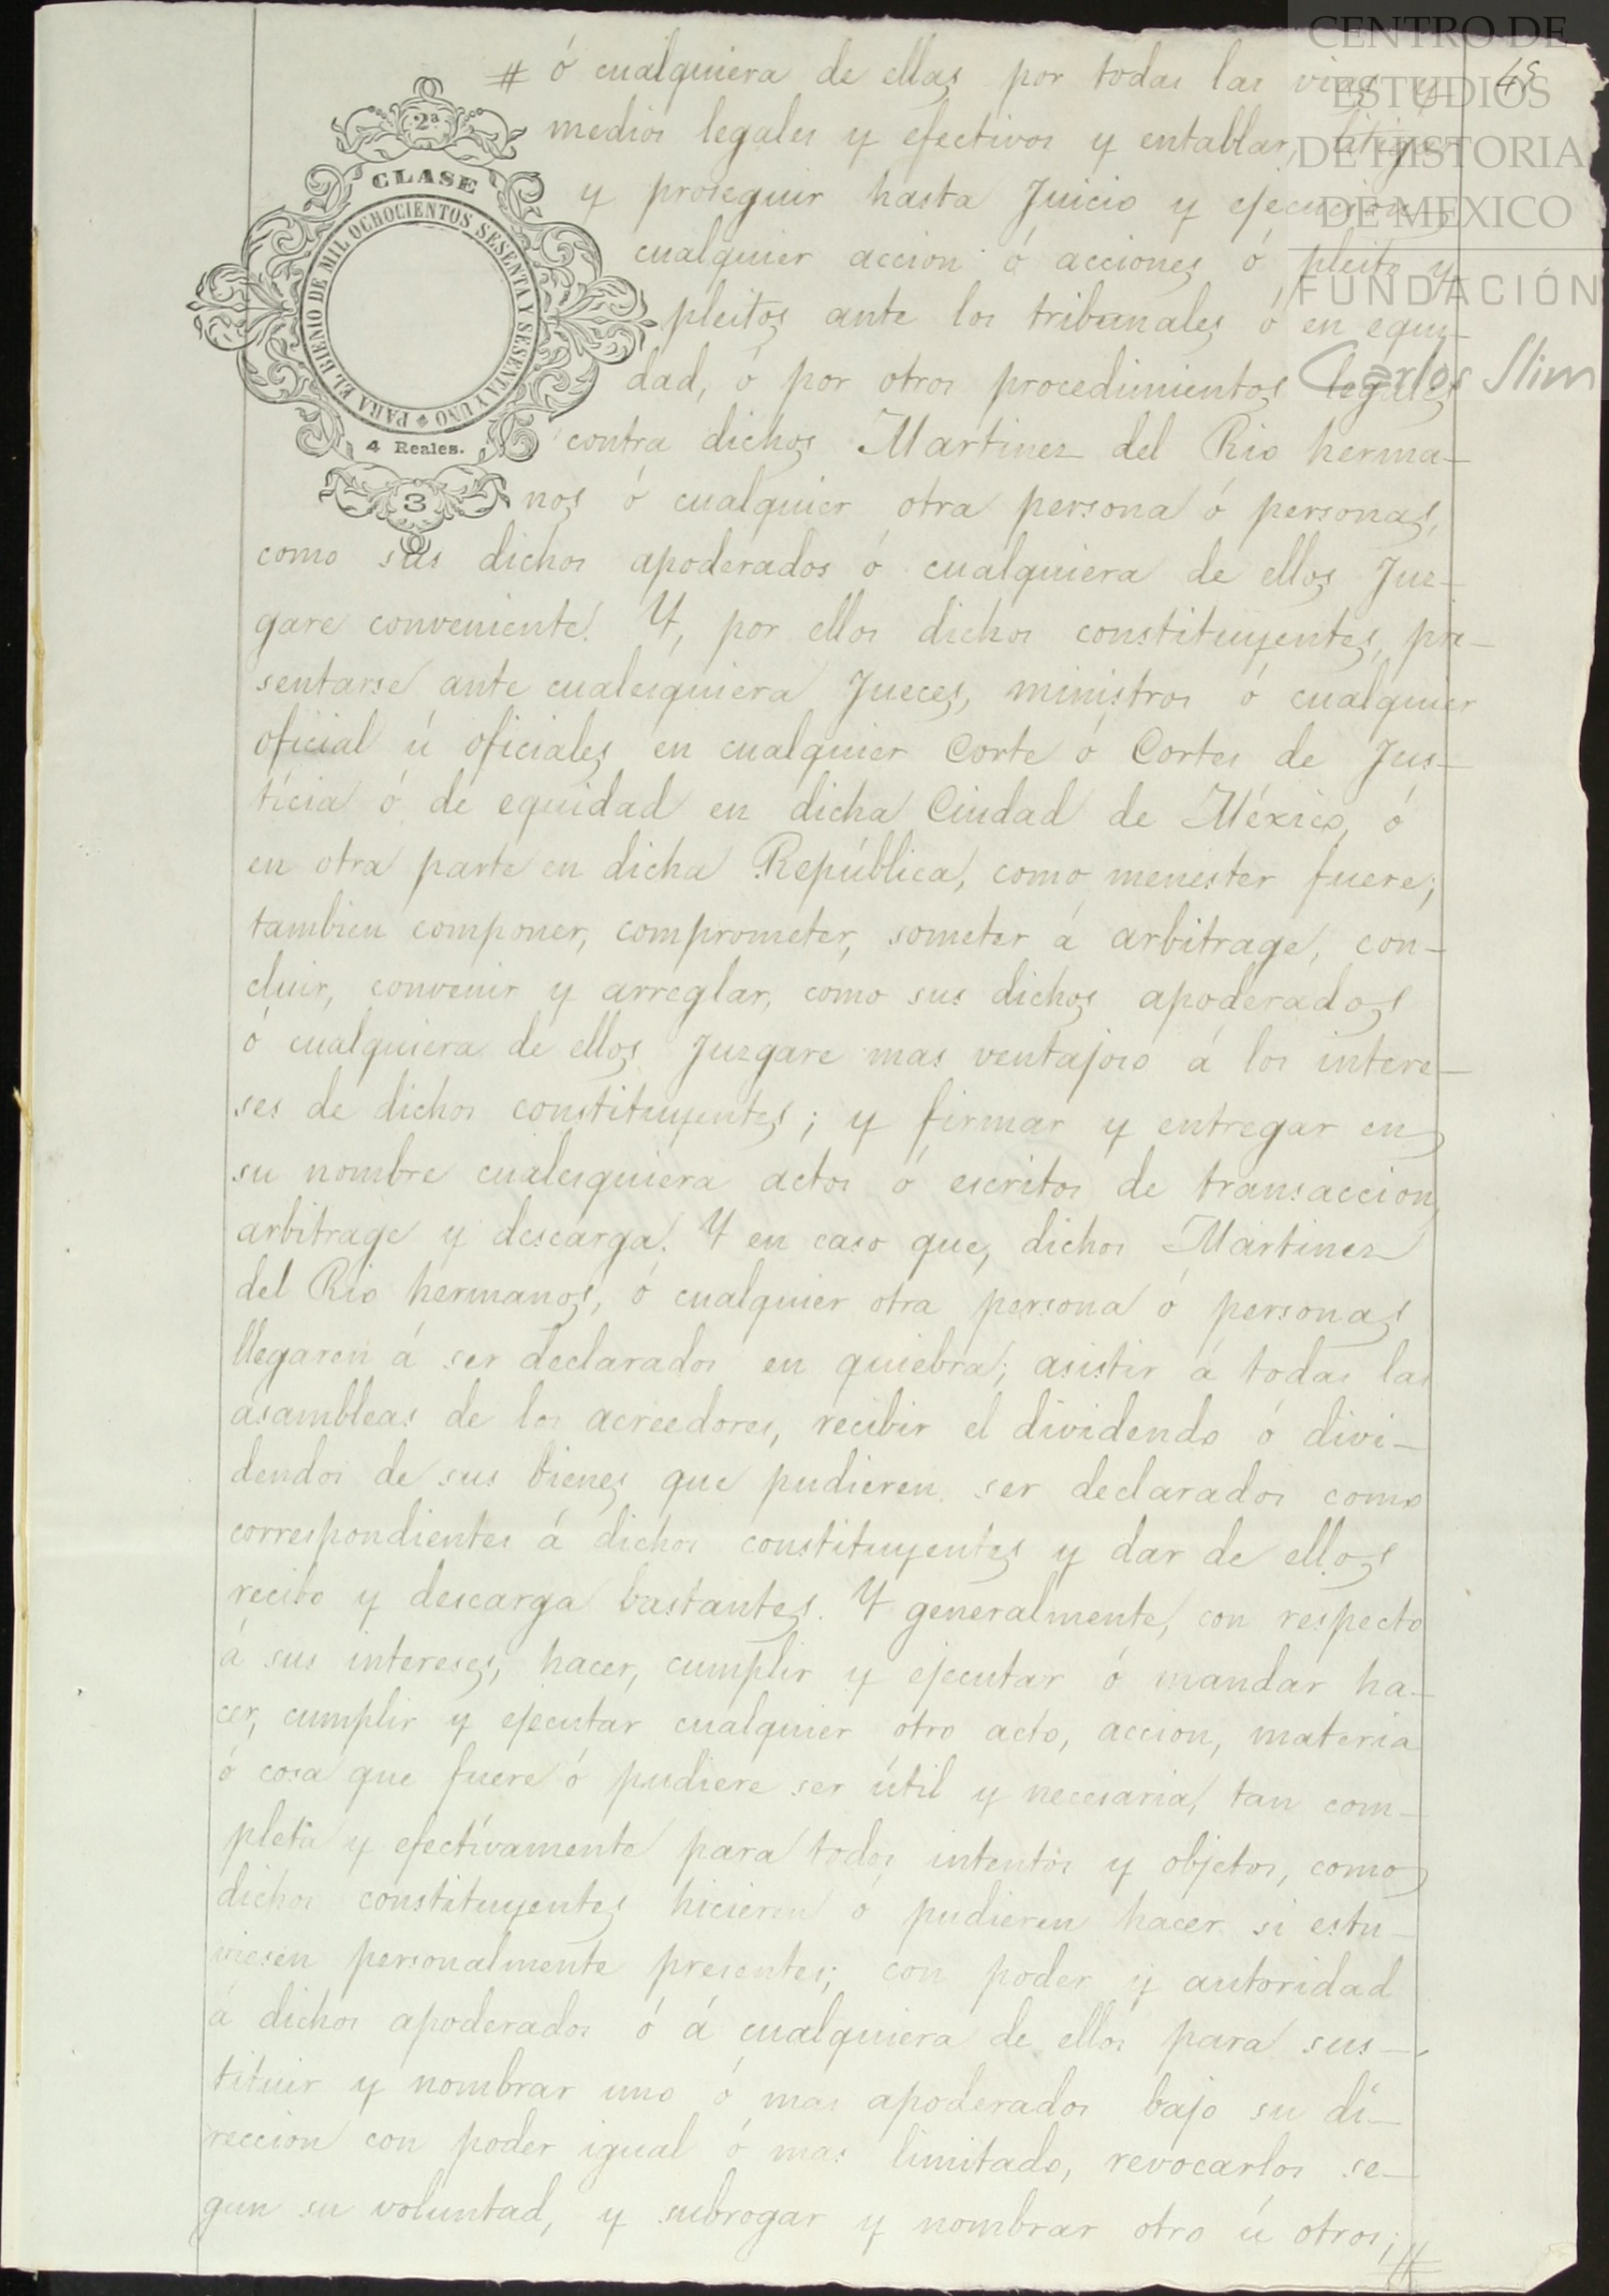 CENTRO DE
ESTUDIOS
DE HISTORIA
DE MEXICO
FUNDACIÓN
Carlos Slim
45
2ª
CLASE
PARA EL BIENIO DE MIL OCHOCIENTOS SESENTA Y SESENTA Y UNO
4 Reales.
3
# ó cualquiera de ellas por todas las vias y
medios legales y efectivos y entablar, litigar
y proseguir hasta Juicio y ejecucion
cualquier accion ó acciones ó pleito y
pleitos ante los tribunales ó en equi-
dad, ó por otros procedimientos legales
contra dichos Martinez del Rio herma-
nos ó cualquier otra persona ó personas,
como sus dichos apoderados ó cualquiera de ellos Juz-
gare conveniente. Y, por ellos dichos constituyentes, pre-
sentarse ante cualesquiera Jueces, ministros ó cualquier
oficial ú oficiales en cualquier Corte ó Cortes de Jus-
ticia ó de equidad en dicha Ciudad de México, ó
en otra parte en dicha República, como menester fuere;
tambien componer, comprometer, someter á arbitrage, con-
cluir, convenir y arreglar, como sus dichos apoderados
ó cualquiera de ellos Juzgare mas ventajoso á los intere-
ses de dichos constituyentes; y firmar y entregar en
su nombre cualesquiera actos ó escritos de transaccion,
arbitrage y descarga. Y en caso que, dichos Martinez
del Rio hermanos, ó cualquier otra persona ó personas
llegaren á ser declarados en quiebra; asistir á todas las
asambleas de los acreedores, recibir el dividendo ó divi-
dendos de sus bienes que pudieren ser declarados como
correspondientes á dichos constituyentes y dar de ellos
recibo y descarga bastantes. Y generalmente, con respecto
á sus intereses, hacer, cumplir y ejecutar ó mandar ha-
cer, cumplir y ejecutar cualquier otro acto, accion, materia
ó cosa que fuere ó pudiere ser útil y necesaria, tan com-
pleta y efectivamente para todos intentos y objetos, como
dichos constituyentes hicieren ó pudieren hacer si estu-
viesen personalmente presentes; con poder y autoridad
á dichos apoderados ó á cualquiera de ellos para sus-
tituir y nombrar uno ó mas apoderados bajo su di-
reccion con poder igual ó mas limitado, revocarlos se-
gun su voluntad, y subrogar y nombrar otro ú otros; #